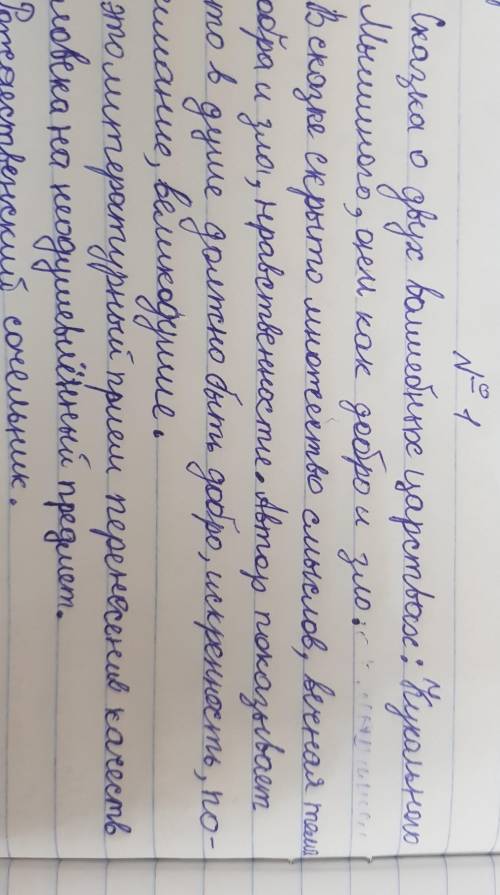 № 1
Сказка о двух волшебных царствах: Кукольного
Мышиного, они как добро и зло.
В сказке скрыто множество смыслов, вечная тема
обра и зла, нравственности. Автор показывает
то в душе должно быть добро, искренность, по-
имание, великодушие.
это литературный прием перенесения качеств
ловека на неодушевлённый предмет.
Рождественский сочельник.